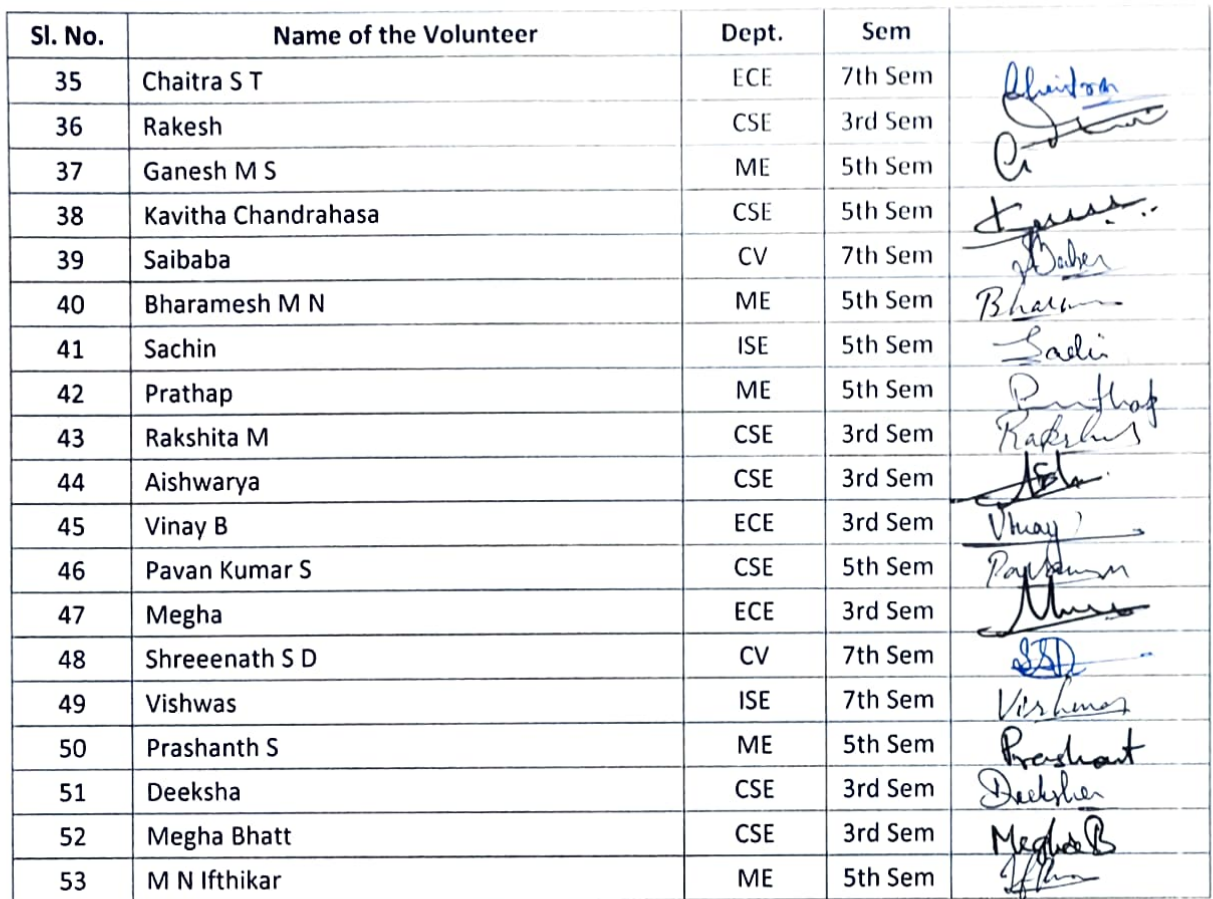 Sl. No. Name of the Volunteer Dept. Sem
35 Chaitra S T ECE 7th Sem
36 Rakesh CSE 3rd Sem
37 Ganesh M S ME 5th Sem
38 Kavitha Chandrahasa CSE 5th Sem
39 Saibaba CV 7th Sem
40 Bharamesh M N ME 5th Sem
41 Sachin ISE 5th Sem
42 Prathap ME 5th Sem
43 Rakshita M CSE 3rd Sem
44 Aishwarya CSE 3rd Sem
45 Vinay B ECE 3rd Sem Vinay
46 Pavan Kumar S CSE 5th Sem
47 Megha ECE 3rd Sem
48 Shreeenath S D CV 7th Sem SSD
49 Vishwas ISE 7th Sem
50 Prashanth S ME 5th Sem Prashant
51 Deeksha CSE 3rd Sem
52 Megha Bhatt CSE 3rd Sem Megha B
53 M N Ifthikar ME 5th Sem